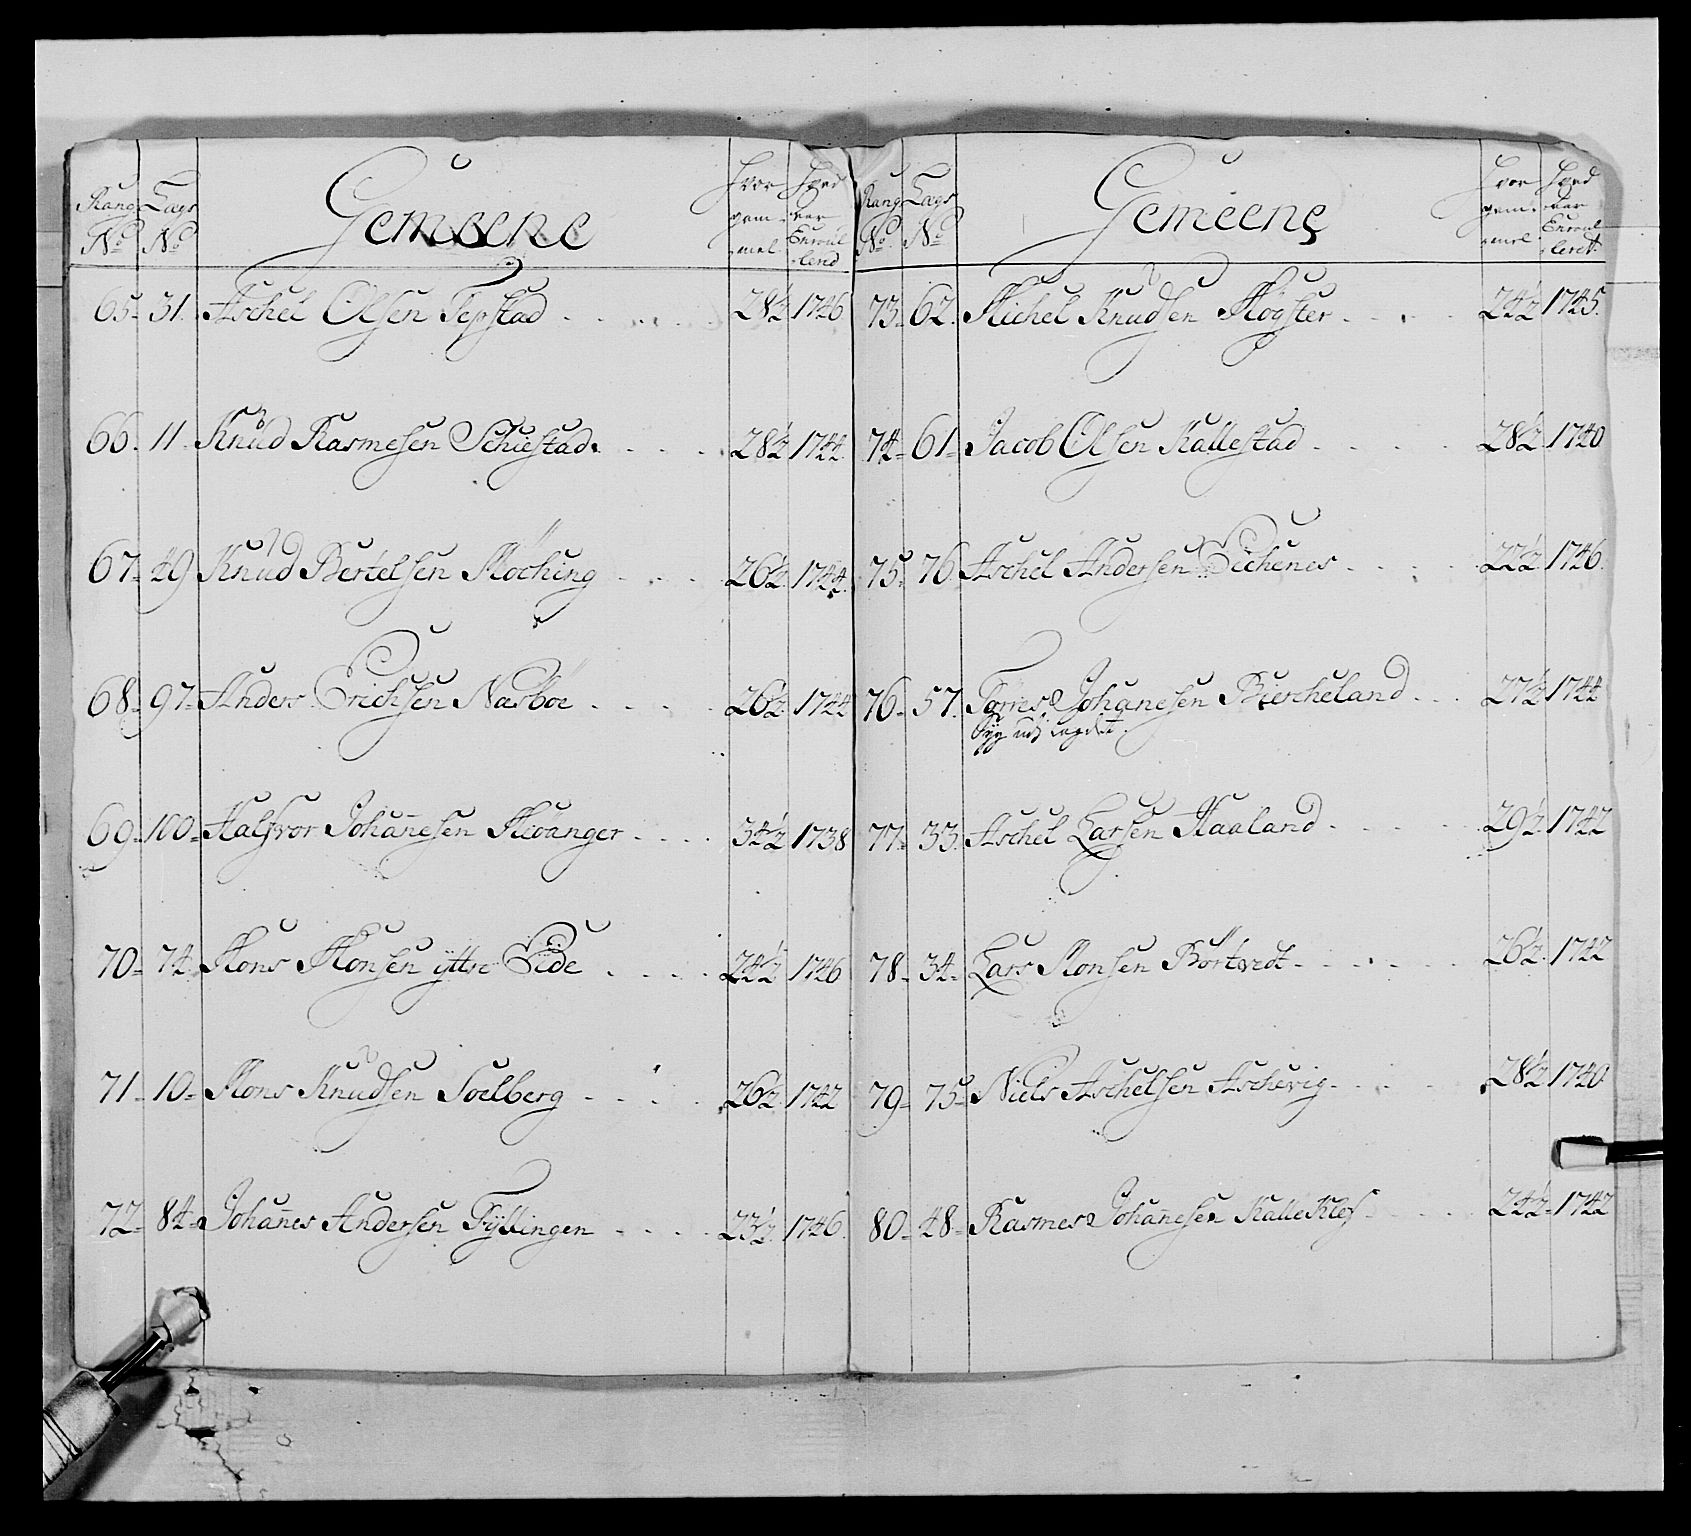 Rang No Lægs No Gemeene Hvor gam-mel Hvad aar Enroul-lered
65- 31. Aschel Olsen Tepstad 28½ 1746
66- 11- Knud Rasmesen Schiestad 28½ 1744
67- 49 Knud Bertelsen Møching 26½ 1744
68- 97- Anders Erichsen Nasböe 26½ 1744
69- 100- Halfvor Johañesen Meванger 34½ 1738
70- 74 Mons Monsen yttre Ejde 24½ 1746
71- 10- Mons Knudsen Soelberg 26½ 1742
72- 84- Johañes Andersen Fyllingen 23½ 1746
Rang No Lægs No Gemeene Hvor gam-mel Hvad aar Enroul-leret
73- 62. Michel Knudsen Møgster 24½ 1745.
74- 61- Jacob Olsen Kallestad 28½ 1740
75- 76 Aschel Andersen Eichenes 22½ 1746.
76- 57. Tørres Johanesen Biercheland 27½ 1744
Syg udj Lægdet.
77- 33. Aschel Larsen Haaland 29½ 1742
78- 34- Lars Monsen Børtvedt 26½ 1742
79- 75- Niels Aschelsen Aschevig 28½ 1740
80- 48- Rasmes Johañesen KalleKlef 24½ 1742